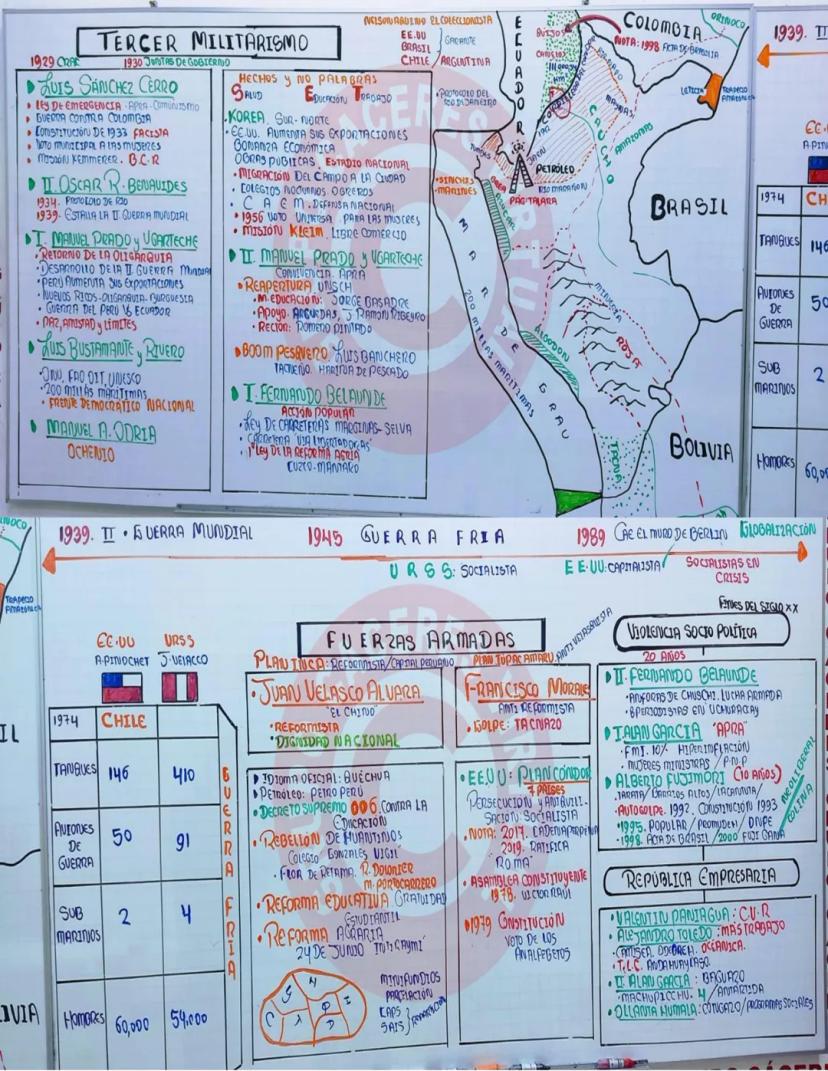 TERCER MILITARISMO
1929 CRAF 1930 JUNTAS DE GOBIERNO
LUIS SÁNCHEZ CERRO
LEY DE EMERGENCIA - APRA - COMUNISMO
GUERRA CONTRA COLOMBIA
CONSTITUCIÓN DE 1933 FACISTA
VOTO MUNICIPAL A LAS MUJERES
MISIÓN KEMMERER. B.C.R
II. OSCAR R. BENAVIDES
1934. PROTOLO DE RIO
1939. ESTALLA LA II GUERRA MUNDIAL
I. MANUEL PRADO y UGARTECHE
RETORNO DE LA OLIGARQUIA
DESARROLLO DE LA II GUERRA MUNDIAL
PERÚ AUMENTA SUS EXPORTACIONES
NUEVOS RICOS - OLIGARQUIA, BURGUESIA
GUERRA DEL PERÚ VS ECUADOR
PAZ, AMISTAD y LÍMITES
LUIS BUSTAMANTE y RIVERO
ONU, FAO OIT, UNESCO
200 MILLAS MARÍTIMAS
FRENTE DEMOCRÁTICO NACIONAL
MANUEL A. ODRIA
OCHENIO
HECHOS y NO PALABRAS
SALUD EDUCACIÓN TRABAJO
KOREA. SUR - NORTE
EE.UU. AUMENTA SUS EXPORTACIONES
BONANZA ECONÓMICA
OBRAS PUBLICAS, ESTADIO NACIONAL
MIGRACIÓN DEL CAMPO A LA CIUDAD
COLEGIOS NOCTURNOS OBREROS
C A E M. DEFENSA NACIONAL
1956 VOTO UNIVERSA. PARA LAS MUJERES
MISIÓN KLEIM, LIBRE COMERCIO
II. MANUEL PRADO y UGARTECHE
CONVIVENCIA. APRA
REAPERTURA. UNSCH
M. EDUCACION: JORGE BASADRE
APOYO. ARGUEDAS, J. RAMON RIBEYRO
RECTOR: ROMERO PINTADO
BOOM PESQUERO. LUIS BANCHERO
TACNEÑO. HARINA DE PESCADO
I. FERNANDO BELAUNDE
ACCIÓN POPULAR
LEY DE CARRETERAS MARGINAS - SELVA
CARRETERA "VIA LIBERTADORAS"
1° LEY DE LA REFORMA AGRIA
CUZCO - MANTARO
NELSON AQUINO EL COLECCIONISTA
EE.UU
BRASIL GARANTE
CHILE ARGENTINA
PROTOCOLO DEL RIO DE JANEIRO
ECUADOR
COLOMBIA
NOTA: 1998 ACTA DE BRASILIA
ORINOCO
LETICIA TRAPECIO AMAZÓNICO
CAUCHO
AMAZONAS
TUMBES
JAEN
PETRÓLEO
RIO MARAÑON
SINCHIS
MARINES
PAG-TALARA
BRASIL
MAR DE GRAU
200 MILLAS MARÍTIMAS
ALGODON
MINERIA
ROJA
BOLIVIA
1939. II
EE.
A. PIN
1974 CH
TANQUES 146
AVIONES DE GUERRA 50
SUB MARINIOS 2
HOMBRES 60,00
1939. II - GUERRA MUNDIAL 1945 GUERRA FRIA 1989 CAE EL MURO DE BERLIN GLOBALIZACIÓN
U R S S: SOCIALISTA EE.UU: CAPITALISTA SOCIALISTAS EN CRISIS
FINES DEL SIGLO XX
TRAPECIO AMAZONICO
EE.UU URSS
A. PINOCHET J. VELACCO
1974 CHILE
TANQUES 146 410
AVIONES DE GUERRA 50 91
SUB MARINIOS 2 4
HOMBRES 60,000 54,000
GUERRA FRIA
FUERZAS ARMADAS
PLAN INCA: REFORMISTA/CAPITAL PERUANO
PLAN TUPAC AMARU. ANTIVELASQUISTA
JUAN VELASCO ALVARA
"EL CHINO"
REFORMISTA
"DIGNIDAD NACIONAL
IDIOMA OFICIAL: QUECHUA
PETRÓLEO: PETRO PERÚ
DECRETO SUPREMO 006. CONTRA LA EDUCACIÓN
REBELION DE HUANTINOS
COLEGIO GONZALES VIGIL
FLOR DE RETAMA. R. DOLORIER
M. PORTOCARRERO
REFORMA EDUCATIVA GRATUIDAD
ESTUDIANTIL
REFORMA AGRARIA
24 DE JUNIO INTI RAYMI
MINIFUNDIOS
PARCELACIÓN
CAPS
SAIS
FRANCISCO MORALES
ANTI REFORMISTA
GOLPE: TACNAZO
EE.UU: PLAN CÓNDOR
7 PAISES
PERSECUCIÓN y ANIQUILI-
SACIÓN SOCIALISTA
NOTA: 2017. CADENA PERPETUA
2019. RATIFICA
ROMA
ASAMBLEA CONSTITUYENTE
1978. VICTOR RAUL
1979 CONSTITUCIÓN
VOTO DE LOS
ANALFABETOS
VIOLENCIA SOCIO POLÍTICA
20 AÑOS
II. FERNANDO BELAUNDE
ANFORAS DE CHUSCHI. LUCHA ARMADA
8 PERIODISTAS EN UCHURACCAY
I ALAN GARCIA "APRA"
FMI. 10% HIPERINFLACIÓN
MUJERES MINISTRAS / P.N.P
ALBERTO FUJIMORI (10 AÑOS)
TARATA / BARRIOS ALTOS / LACANTUTA
AUTOGOLPE. 1992. CONSTITUCIÓN 1993
1995. POPULAR / PROMUDEH / ONPE
1998. ACTA DE BRASIL / 2000 FUJI GANA
NEOLIBERAL
COLINA
REPÚBLICA EMPRESARIA
VALENTIN PANIAGUA: C.V.R
ALEJANDRO TOLEDO: MÁS TRABAJO
CAMISEA. ODEBRECH. OCEÁNICA.
T.L.C. ANDAHUAYLAZO.
II ALAN GARCIA: BAGUAZO
MACHUPICCHU. / ANTARTIDA
OLLANTA HUMALA: CONGAZO / PROGRAMAS SOCIALES